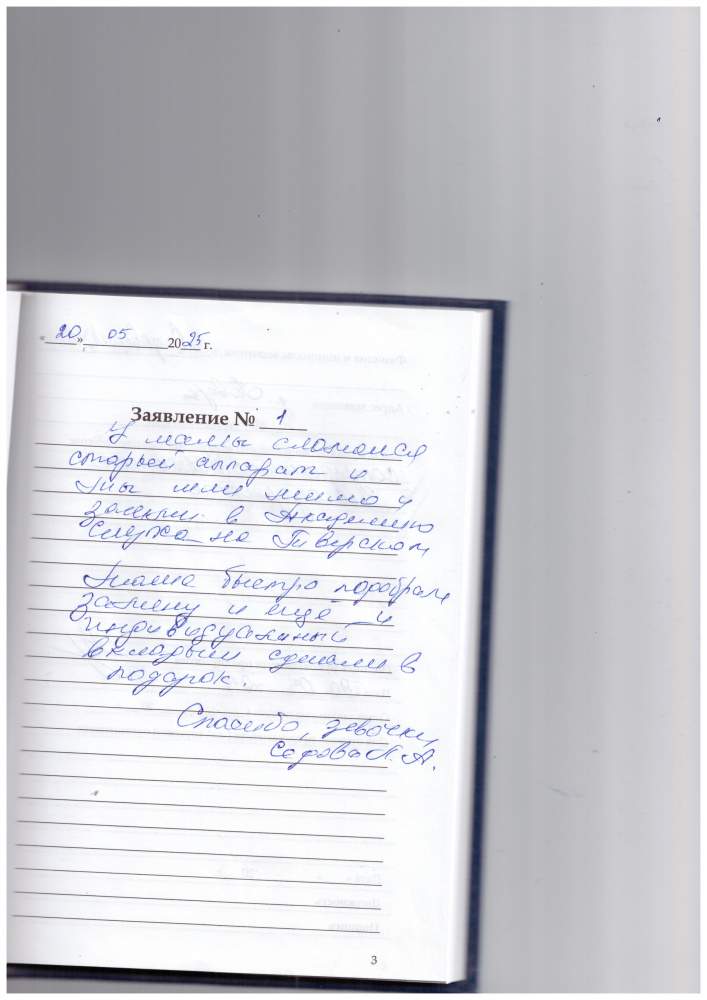 «20» 05 2025 г.
Заявление № 1
У мамы сломался
старый аппарат и
мы шли мимо и
зашли в Академию
Слуха на Тверском
Маме быстро подобрали
замену и ещё и
индивидуальный
вкладыш сделали в
подарок.
Спасибо, девочки,
Седова А.
3